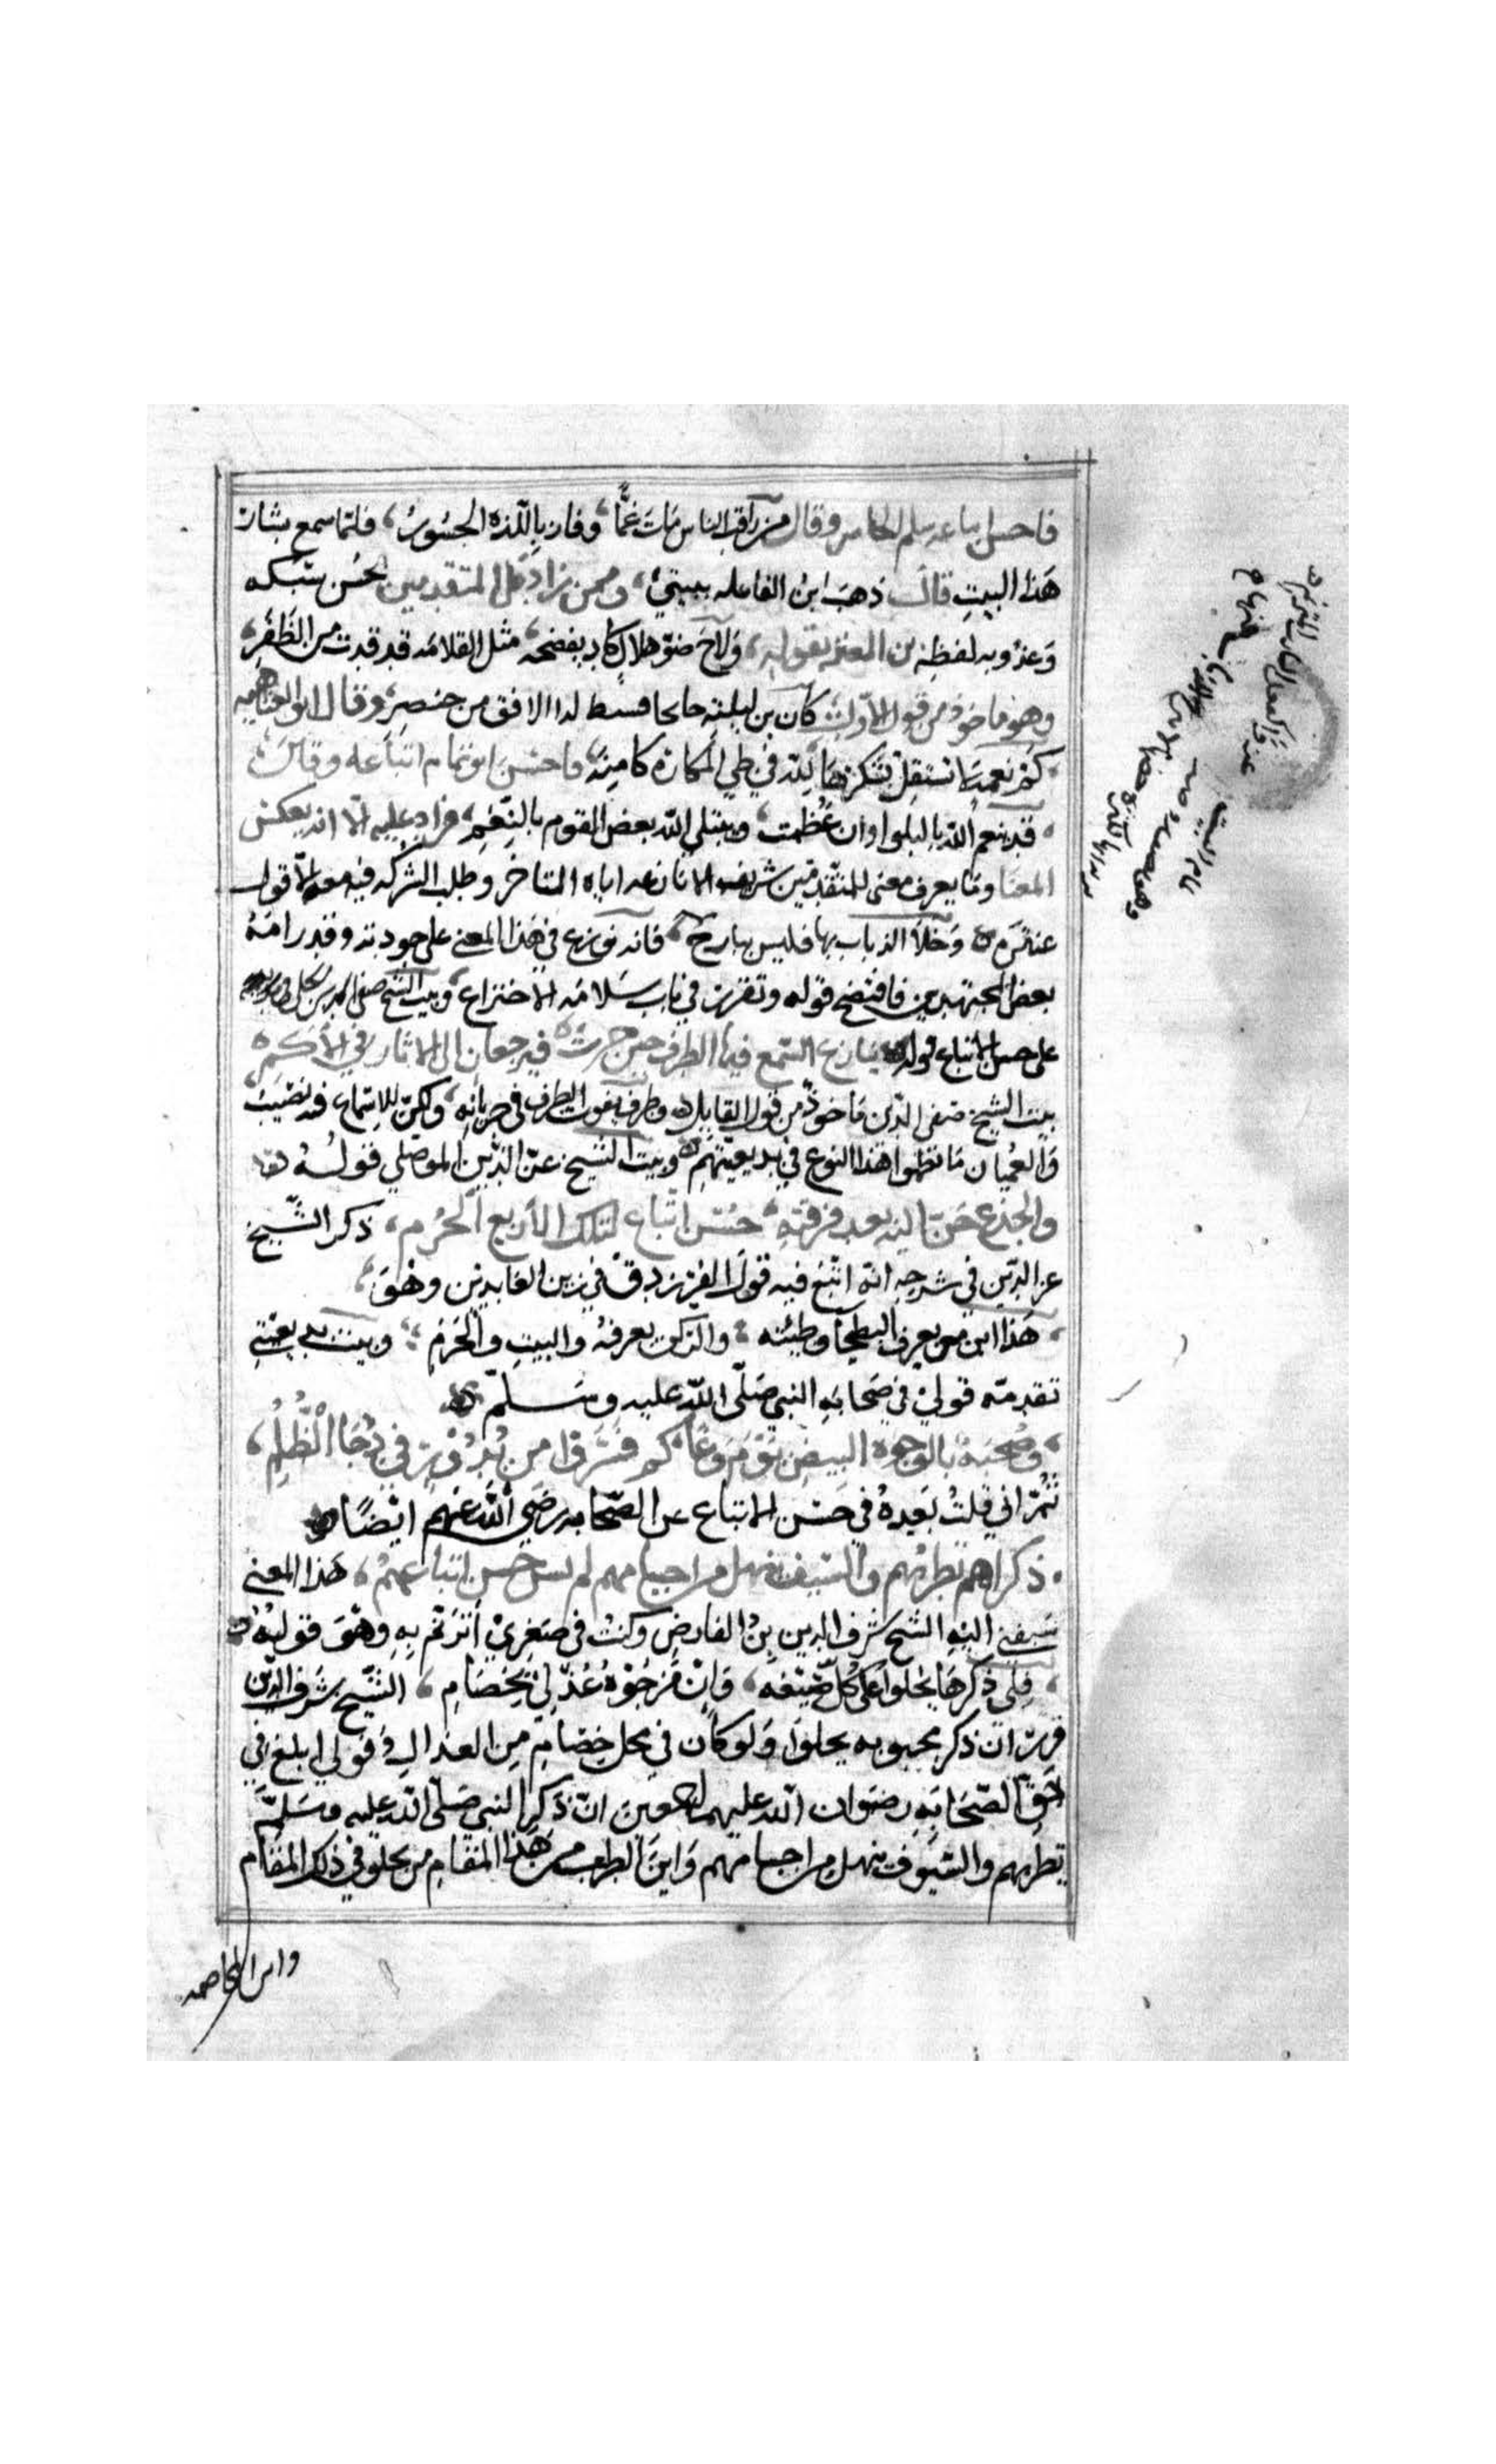 فاحسن اتباعه سلم الخاسر وقال من راقب الناس مات غمًّا وفاز باللذه الجسُورُ، فلما سمع بشار
هَذا البيتِ قالَ ذهبَ ابن الفاعله ببيتي، وممن زاد على المتقدمين بحُسن سَبكه
وعذوبه لفظِه بن المعتز بقوله، وَلاحَ ضوّ هلالٍ كاد يفضحه مثل القلامَه قد قدت من الظَفَرِ،
وهو ماخوذ من قول الأول كان بن ليلته جانحا فسيط لدا الافق من خنصرِ، وقال ابو العتاهيه
كم نعمة لا تستقل بشكرها لله في طي المكاره كامنه، فاحسَنَ ابو تمام اتباعه وقالَ
قد ينعم الله بالبلوا وان عظمت، ويبتلي الله بعض القوم بالنِعَمِ، فزاد عليه الا انه بعكس
المعنا وما يعرف معنى للمتقدمين شريف الا نازعه اياه المتاخر وطلب الشركه فيه معه الا قول
عنتَره وَخَلا الذباب بها فليس ببارح، فانه نوزع في هَذا المعنى على جودته وقد رامَهُ
بعض المجتهدين فافتضح قوله وتقرر في باب سَلامَه الاختراع، وبيت الشيخ صفي الدين الحلي
على حسن الاتباع قوله ينازع السَّمع فيها الطرف حين جرت فيرجعان الى الاثار في الأكم
بيت الشيخ صَفي الدين مَاخوذ من قول القايل وطرف يفوت الطرف في جريانه، ولكن للاسماع فيه نصَيبُ
وَالعُميان مَا نظموا هَذا النوع في بديعيتهم وبيت الشيخ عزّ الدّين الموصَلي قولُهُ
والجذع حَنّ اليه بعد فرقته حُسْن اتبّاع لتلك الأربع الحُرُم، ذكر الشّيخ
عز الدّين في شرحِهِ انه اتبَع فيه قولَ الفرزدق في زين العابدين وهُوَ
هَذا ابن من يعرف البطحا وطيئته والركن يعرفهُ والبيتِ والحَرَمِ وبيت بديعيتي
تقدمته قولي في صَحابَه النبي صَلّى الله عليه وسَلم
وصُحبَهُ بالوجوه البيض يَوْمَ وَغًا كم فَسَّرَوا من بُدُوْرٍ في دُجَا الظُلِمُ،
ثُمّ اني قلتُ بَعدهُ في حَسْن الاتباع عن الصّحابه رضَي اللهُ عنهم ايضًا
ذكراهم تطربهم والسَّيف ينهل من اجسامهم لم يشن حسن اتباعهمُ، هَذا المعنى
سَبقني اليه الشيخ شرف الدين بن الفارض وكنتُ في صَغِريْ أترنّم بِهِ وهُوَ قوله
فلى ذكرهَا يحلوا عَلى كُلّ صيَغه، وَاِنْ مَزجُوْهُ عُذّلي بخصَامِ، الشيّخ شَرف الدّين
قررَ انّ ذكر محبوبه يحلوا وَلو كان في محل خصَامٍ من العذالِ وقولي ابلغ في
حَق الصّحَابَه رضوان الله عليهم اجمعين انّ ذكر النبي صَلّى الله عليه وسَلّم
يطربهم والسّيَوف ينهل من اجسامهم وَاينَ الطرب من هَذا المقَام من يحلو في ذلك المقَام
واين المخاصمه